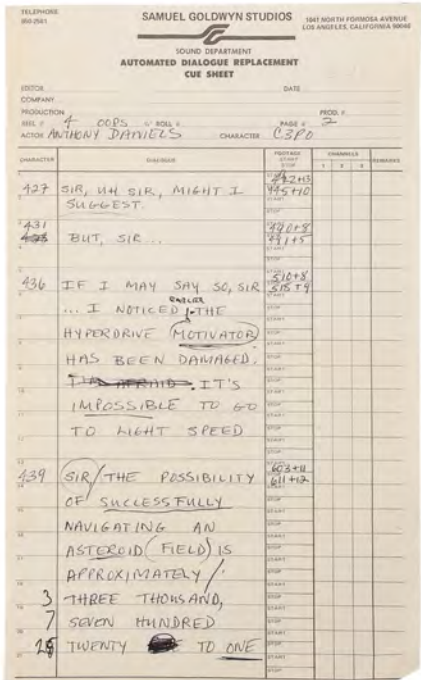 TELEPHONE
SAMUEL GOLDWYN STUDIOS
1041 NORTH FORMOSA AVENUE
LOS ANGELES, CALIFORNIA 90046
SOUND DEPARTMENT
AUTOMATED DIALOGUE REPLACEMENT
CUE SHEET
EDITOR DATE
COMPANY
PRODUCTION PROD. #
REEL # 4 OOPS ROLL # PAGE # 2
ACTOR ANTHONY DANIELS CHARACTER C3PO
CHARACTER DIALOGUE FOOTAGE START STOP CHANNELS 1 2 3 REMARKS
427 SIR, UH SIR, MIGHT I 442+13
SUGGEST. 445+10
431
BUT, SIR... 490+8
491+5
436 IF I MAY SAY SO, SIR 510+8
... I NOTICED EARLIER THE 515+9
HYPERDRIVE MOTIVATOR
HAS BEEN DAMAGED.
I'M AFRAID. IT'S
IMPOSSIBLE TO GO
TO LIGHT SPEED
439 SIR/THE POSSIBILITY 603+11
OF SUCCESSFULLY 611+12
NAVIGATING AN
ASTEROID (FIELD) IS
APPROXIMATELY/
3 THREE THOUSAND,
7 SEVEN HUNDRED
TWENTY TO ONE